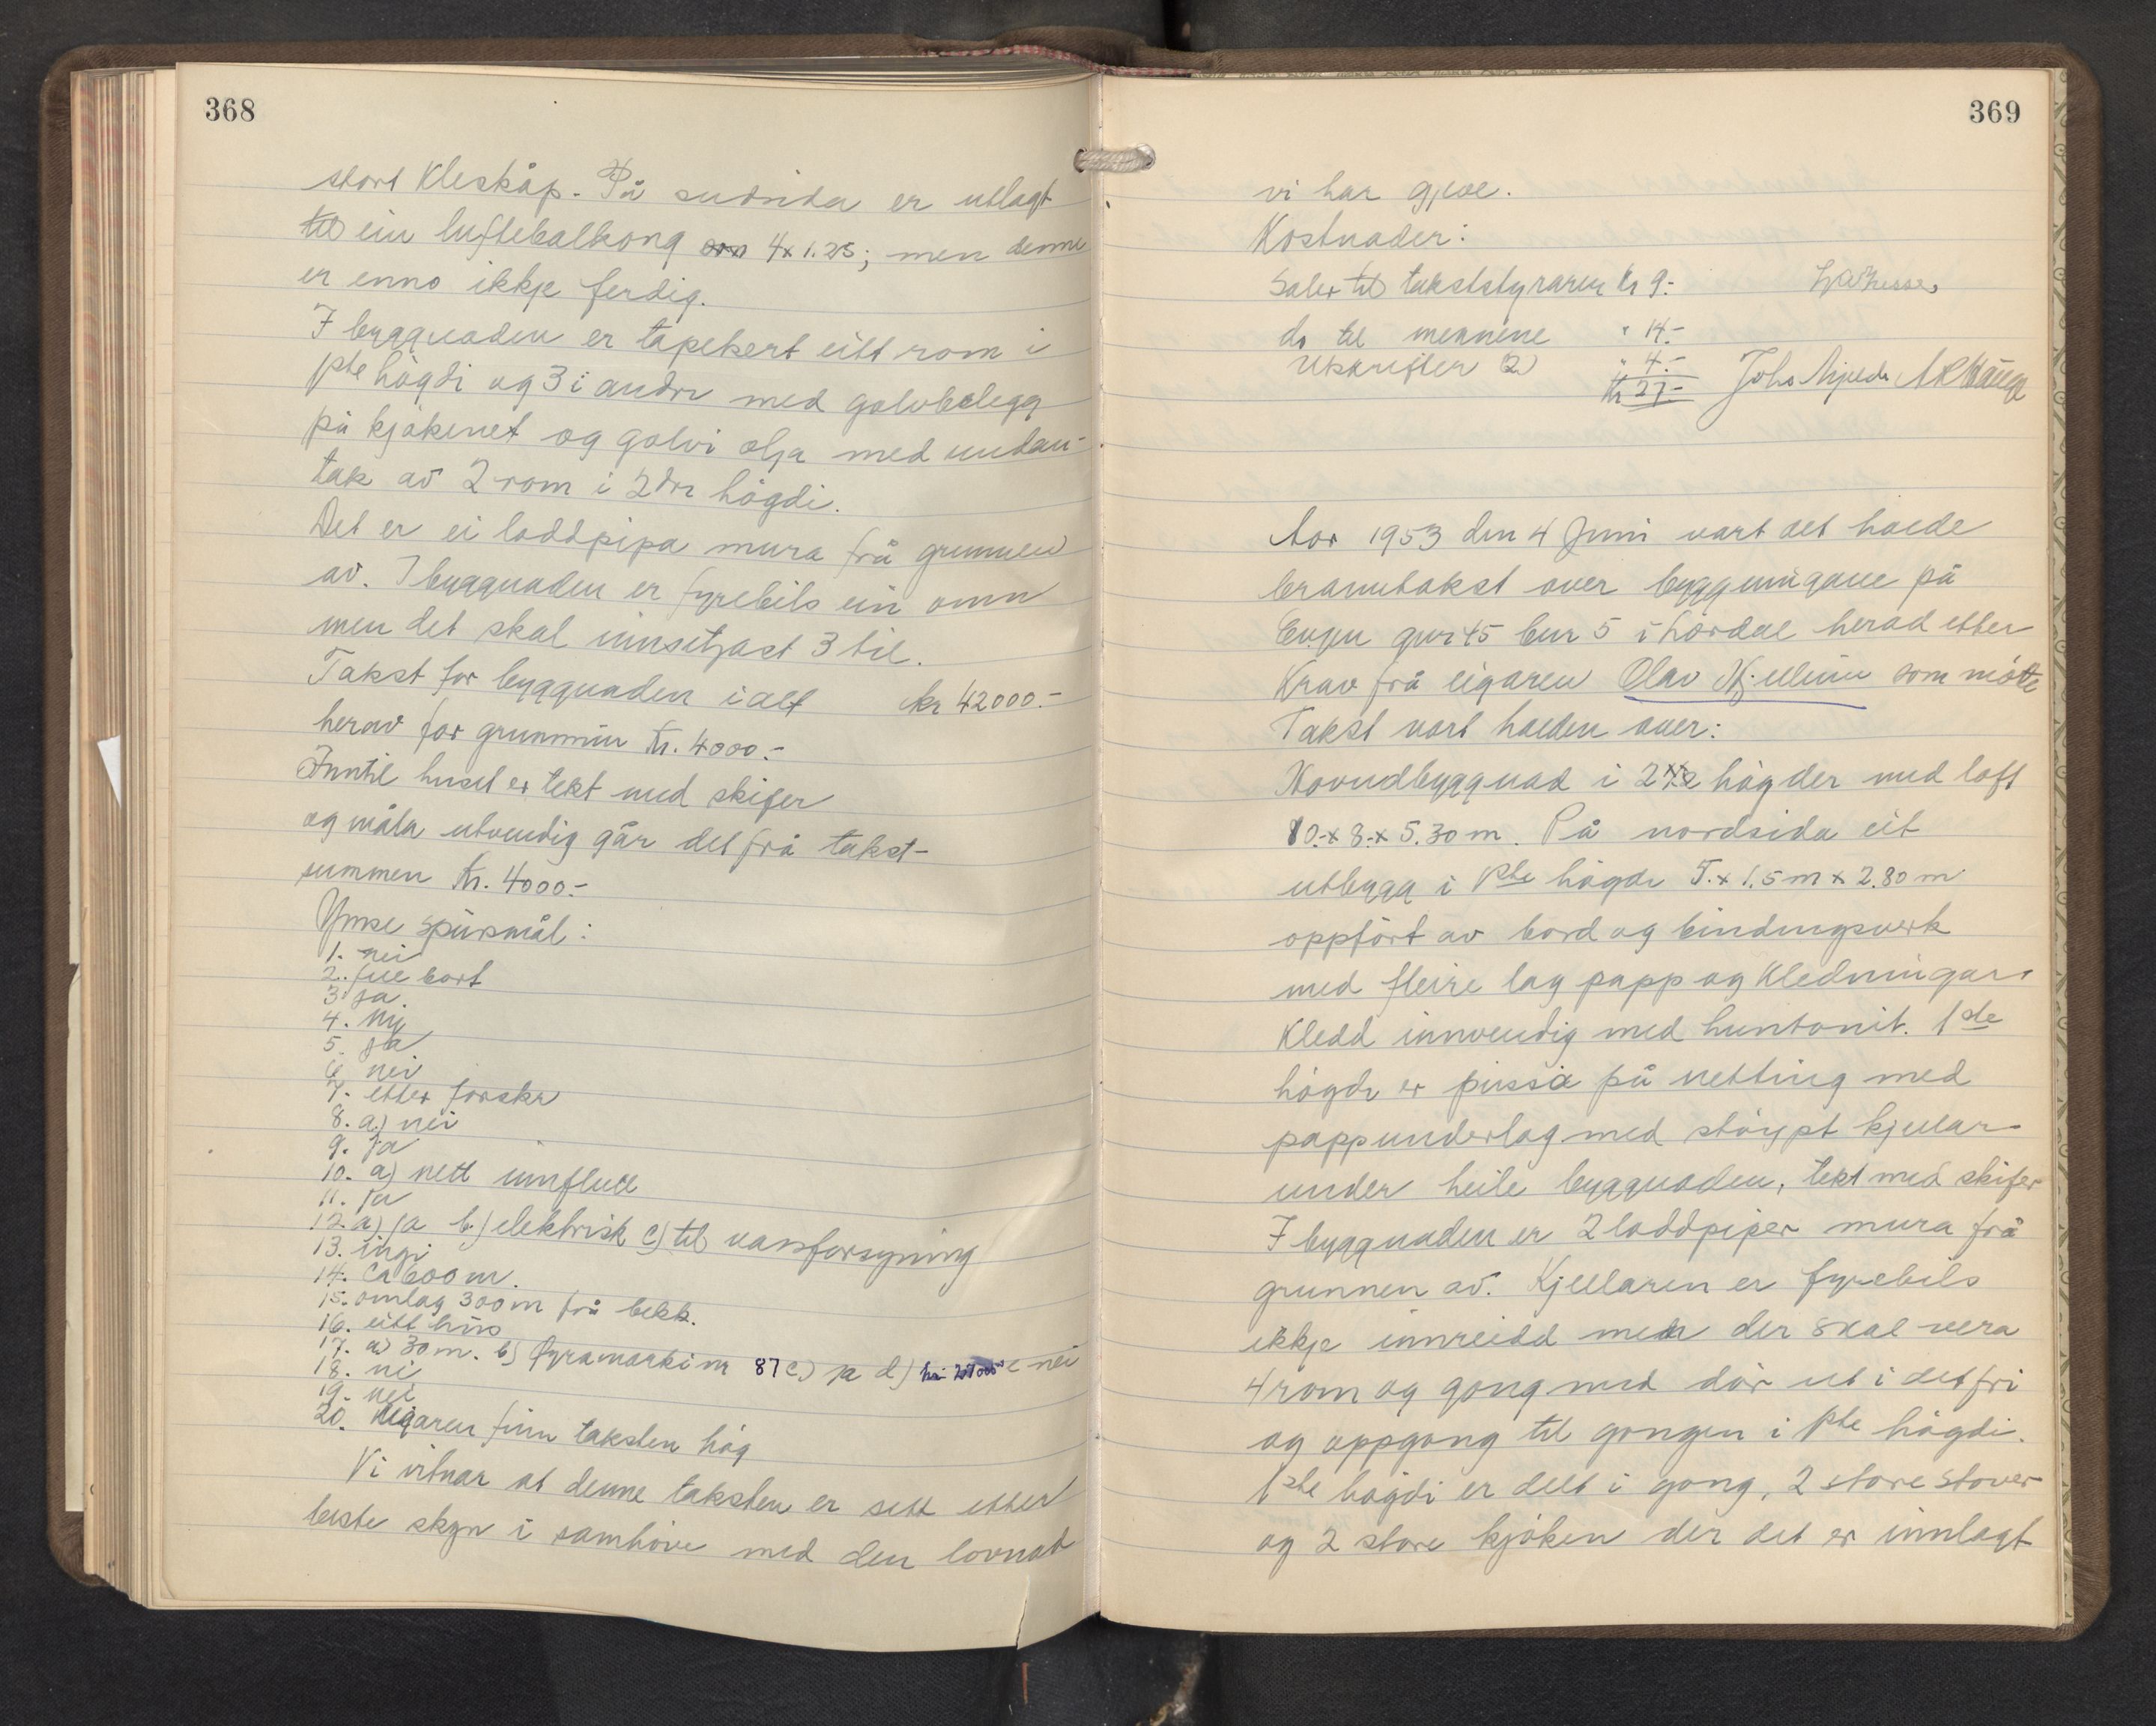 368
stort kleskåp. På sudsida er utlagt
til ein luftebalkong 4 x 1.25; men denne
er enno ikkje ferdig.
I byggnaden er tapesert eitt rom i
1ste högdi og 3 i andre med golvbelegg
på kjökenet og golvi olja med undan-
tak av 2 rom i 2dre högdi.
Det er ei loddpipa mura frå grunnen
av. I byggnaden er fyrebils ein omn
men det skal innsetjast 3 til.
Takst for byggnaden i alt kr 42000.-
herav for grunnmur Kr. 4000.-
Inntil huset er tekt med skifer
og måla utvendig går det frå takst-
summen Kr. 4000.-
Ymse spursmål:
1. nei
2. full bort
3 ja.
4. ny
5. ja
6 nei
7. etter forskr
8. a) nei
9. ja
10. a) nett innflutt
11. ja
12. a) ja b) elektrisk c) til vassforsyning
13. ingi
14. ca 600 m.
15. omlag 300 m frå bekk.
16. eitt hus
17. a) 30 m. b) Fyramarki nr 87 c) ja d) e nei
18. nei
19. nei
20. Eigaren finn taksten høg
Vi vitnar at denne taksten er sett etter
beste skyn i samhöve med den lovnad
369
vi har gjeve.
Kostnader:
Salær til takststyraren kr 9.-
do til mennene " 14.-
Utskrifter (2) " 4.-
Kr 27.- Johs
Aar 1953 den 4 Juni vart det halde
branntakst over byggningane på
gnr 45 bnr 5 i Lærdal herad etter
Krav frå eigaren Olav Hjellum som møtte
Takst vart halden over:
Hovudbyggnad i 2 högder med loft
10.- x 8.- x 5.30 m. På nordsida eit
utbygg i 1ste högdi 5. x 1.5 m x 2.80 m
oppført av bord og bindingsverk
med fleire lag papp og kledningar.
Kledd innvendig med huntonit. 1ste
högdi er pussa på netting med
pappunderlag med støypt kjellar
under heile byggnaden, tekt med skifer
I byggnaden er 2 loddpiper mura frå
grunnen av. Kjellaren er fyrebils
ikkje innreidd men der skal vera
4 rom og gong med dør ut i det fri
og oppgong til gongen i 1ste högdi.
1ste högdi er delt i gong, 2 store stover
og 2 store kjøken der det er innlagt